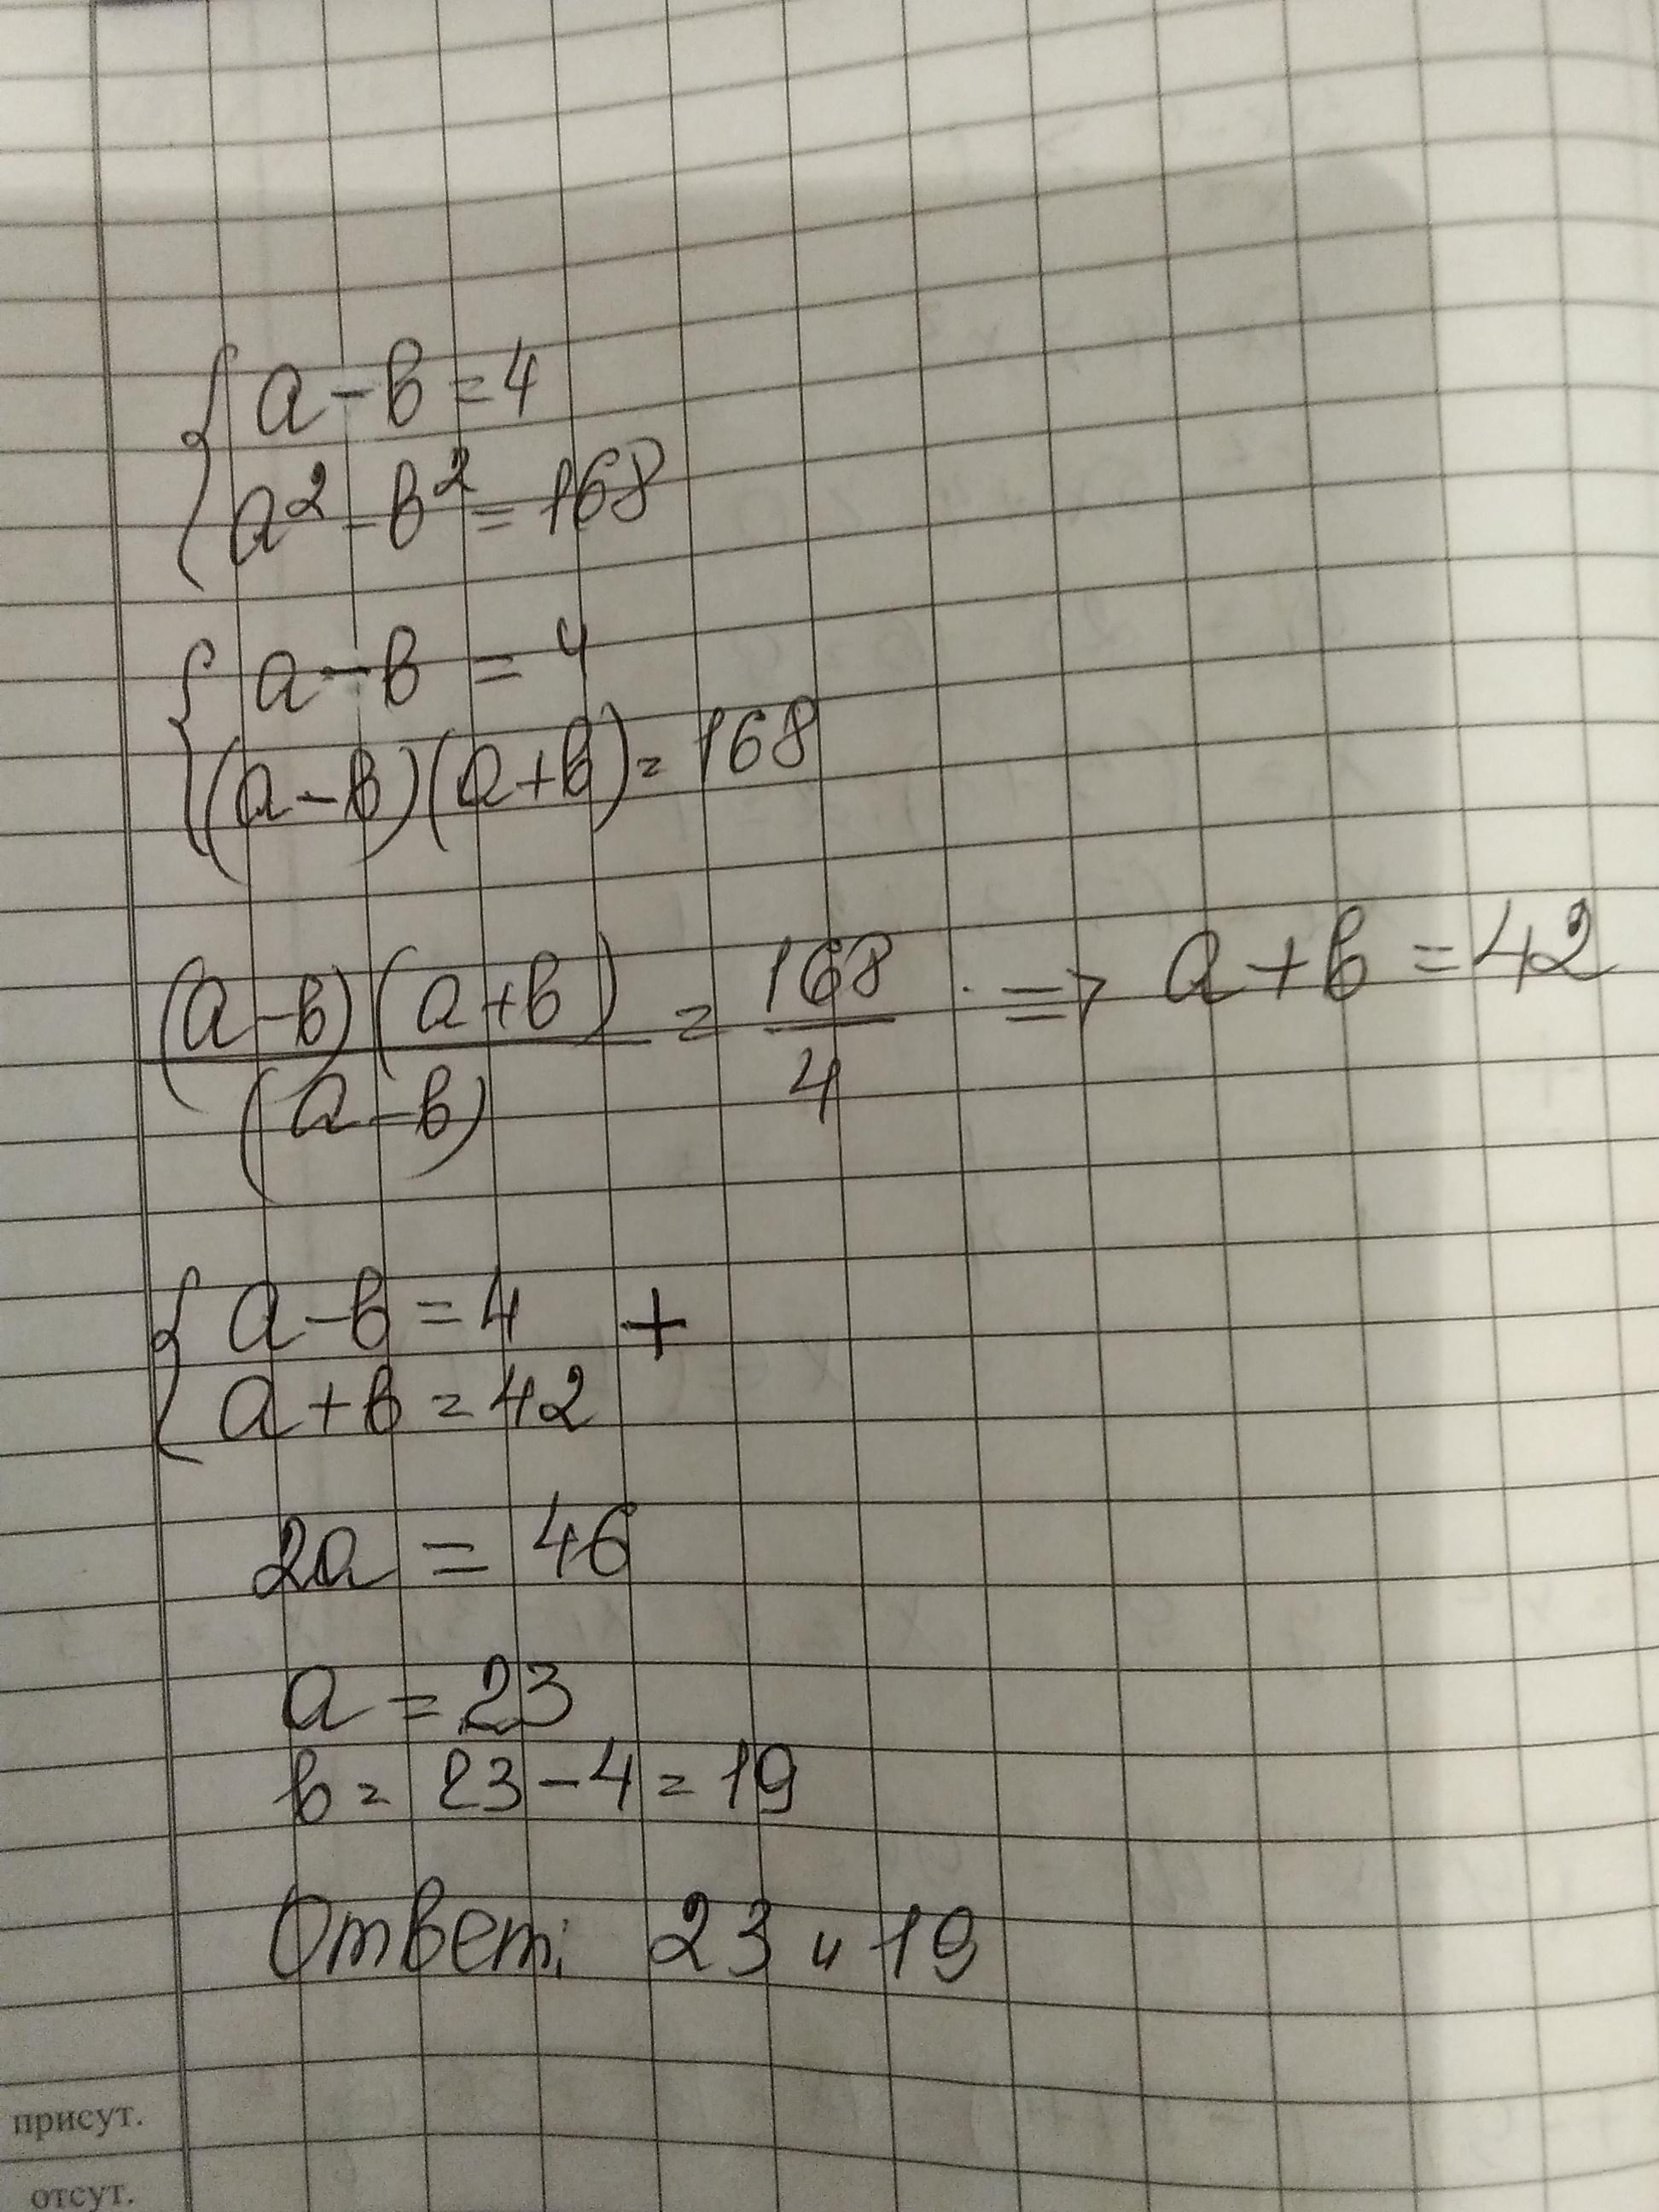 { a - b = 4
a² - b² = 168
{ a - b = 4
(a - b)(a + b) = 168
(a - b)(a + b) / (a - b) = 168 / 4 => a + b = 42
{ a - b = 4 +
a + b = 42
2a = 46
a = 23
b = 23 - 4 = 19
Ответ: 23 и 19
присут.
отсут.